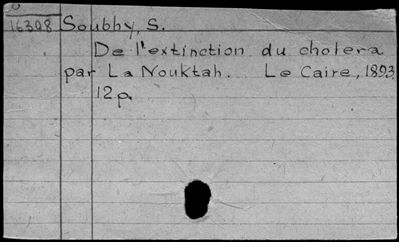 16308 Soubhy, S.
De l'extinction du cholera
par La Nouktah. Le Caire, 1893.
12p.